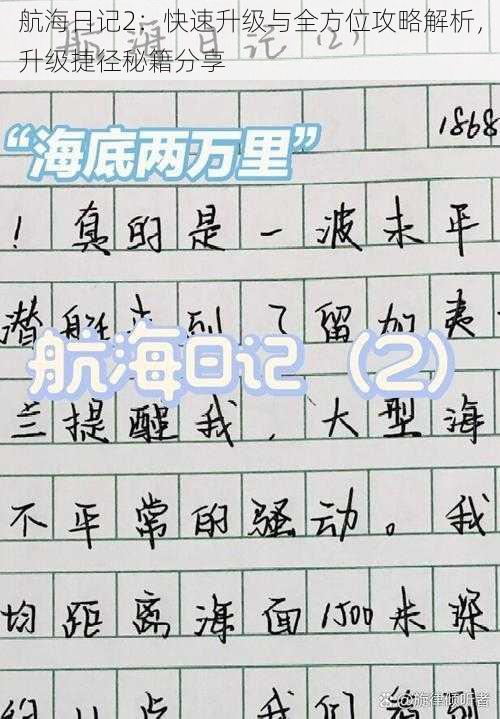 航海日记2：快速升级与全方位攻略解析，
升级捷径秘籍分享
航海日记(2)
1868
“海底两万里”
！真的是一波未平
潜艇来到了留加夷
航海日记（2）
兰提醒我，大型海
不平常的骚动。我
均距离海面1500米深
约11点 我们
@旋律倾听者